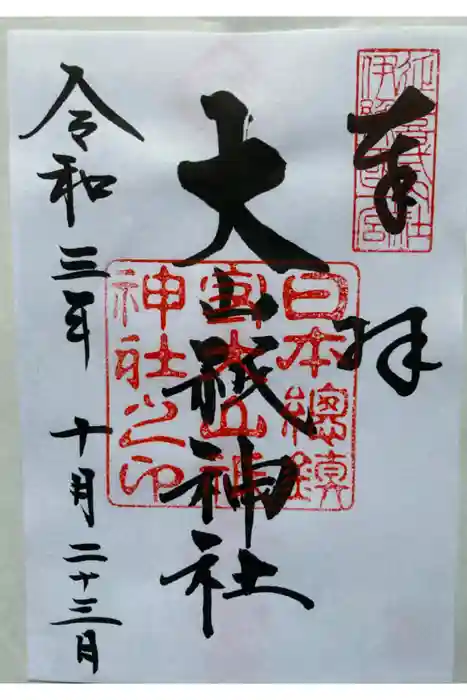 奉拝
大山祇神社
日本總鎮
守大山祇
神社之印
令和三年 十月 二十三日